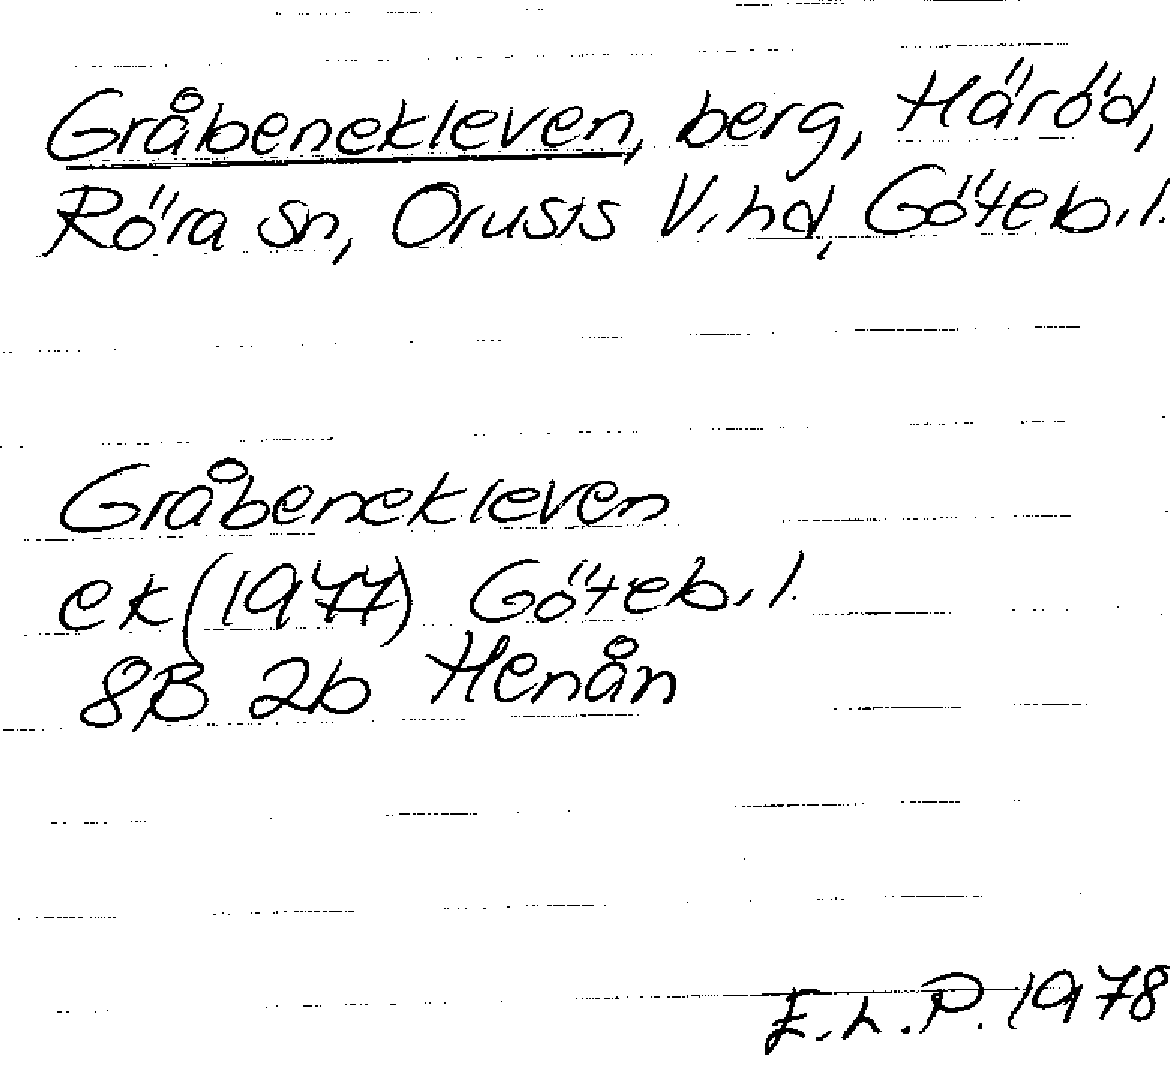 Gråbenekleven, berg, Häröd,
Röra sn, Orusts V.hd, Göteb.l.
Gråbenekleven
ek (1977) Göteb.l.
8B 2b Henån
E.L.P. 1978